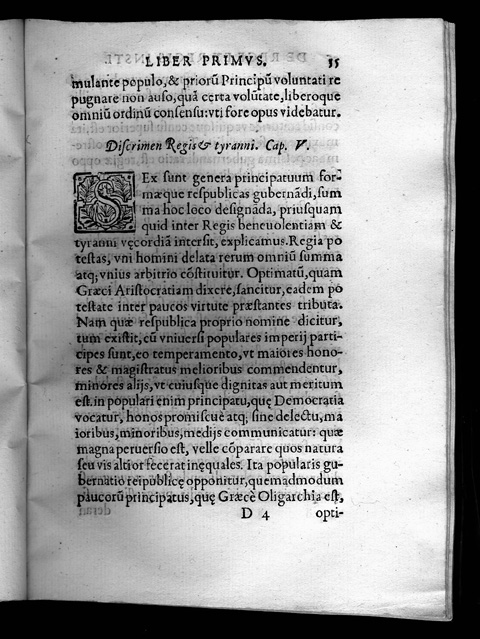 LIBER PRIMVS. 55
mulante populo, & priorũ Principũ voluntati re
pugnare non auso, quã certa volũtate, liberoque
omniũ ordinũ consensu: vti fore opus videbatur.
Discrimen Regis & tyranni. Cap. V.
SEx sunt genera principatuum for-
mæque respublicas gubernãdi, sum
ma hoc loco designãda, priusquam
quid inter Regis beneuolentiam &
tyranni vecordiã intersit, explicamus. Regia po
testas, vni homini delata rerum omniũ summa
atq; vnius arbitrio cõstituitur. Optimatũ, quam
Græci Aristocratiam dixere, sancitur, eadem po
testate inter paucos virtute præstantes tributa.
Nam quæ respublica proprio nomine dicitur,
tum existit, cũ vniuersi populares imperij parti-
cipes sunt, eo temperamento, vt maiores hono-
res & magistratus melioribus commendentur,
minores alijs, vt cuiusque dignitas aut meritum
est. in populari enim principatu, quę Democratia
vocatur, honos promiscuè atq; sine delectu, ma
ioribus, minoribus, medijs communicatur: quæ
magna peruersio est, velle cõparare quos natura
seu vis altior fecerat inęquales. Ita popularis gu-
bernatio reipublicę opponitur, quemadmodum
paucorũ principatus, quę Græcè Oligarchia est,
D 4 opti-